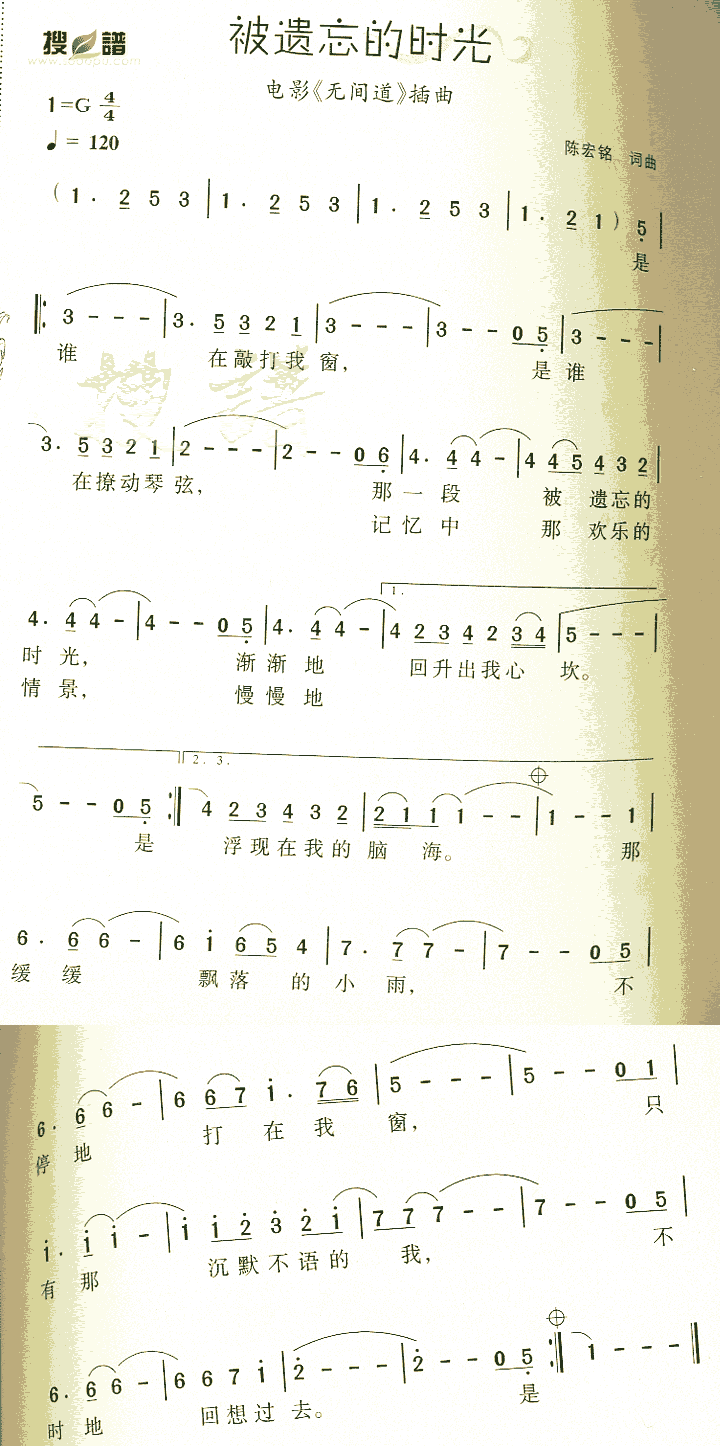 搜谱
www.sooopu.com
被遗忘的时光
电影《无间道》插曲
1=G 4/4
♩= 120
陈宏铭 词曲
( 1 . 2 5 3 | 1 . 2 5 3 | 1 . 2 5 3 | 1 . 2 1 ) 5 |
是
‖: 3 - - - | 3. 5 3 2 1 | 3 - - - | 3 - - 0 5 | 3 - - - |
谁 在敲打我窗, 是谁
3. 5 3 2 1 | 2 - - - | 2 - - 0 6 | 4. 4 4 - | 4 4 5 4 3 2 |
在撩动琴弦, 那一段 被 遗忘的
记忆中 那 欢乐的
1.
4. 4 4 - | 4 - - 0 5 | 4. 4 4 - | 4 2 3 4 2 3 4 | 5 - - - |
时光, 渐渐地 回升出我心坎。
情景, 慢慢地
2. 3.
5 - - 0 5 :‖ 4 2 3 4 3 2 | 2 1 1 1 - - | 1 - - 1 |
是 浮现在我的脑海。 那
6 . 6 6 - | 6 i 6 5 4 | 7 . 7 7 - | 7 - - 0 5 |
缓缓 飘落的小雨, 不
6. 6 6 - | 6 6 7 i . 7 6 | 5 - - - | 5 - - 0 1 |
停地 打在我窗, 只
i. i i - | i i 2 3 2 i | 7 7 7 - - | 7 - - 0 5 |
有那 沉默不语的我, 不
6. 6 6 - | 6 6 7 i | 2 - - - | 2 - - 0 5 :‖ 1 - - - ‖
时地 回想过去。 是